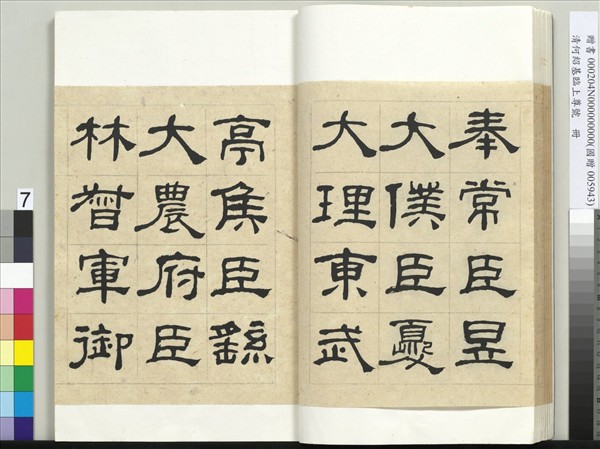 贈書 000204N000000000(國贈 005943)
清何紹基臨上尊號 冊
奉常臣昱
大僕臣夔
大理東武
亭侯臣繇
大農府臣
林督軍御
7